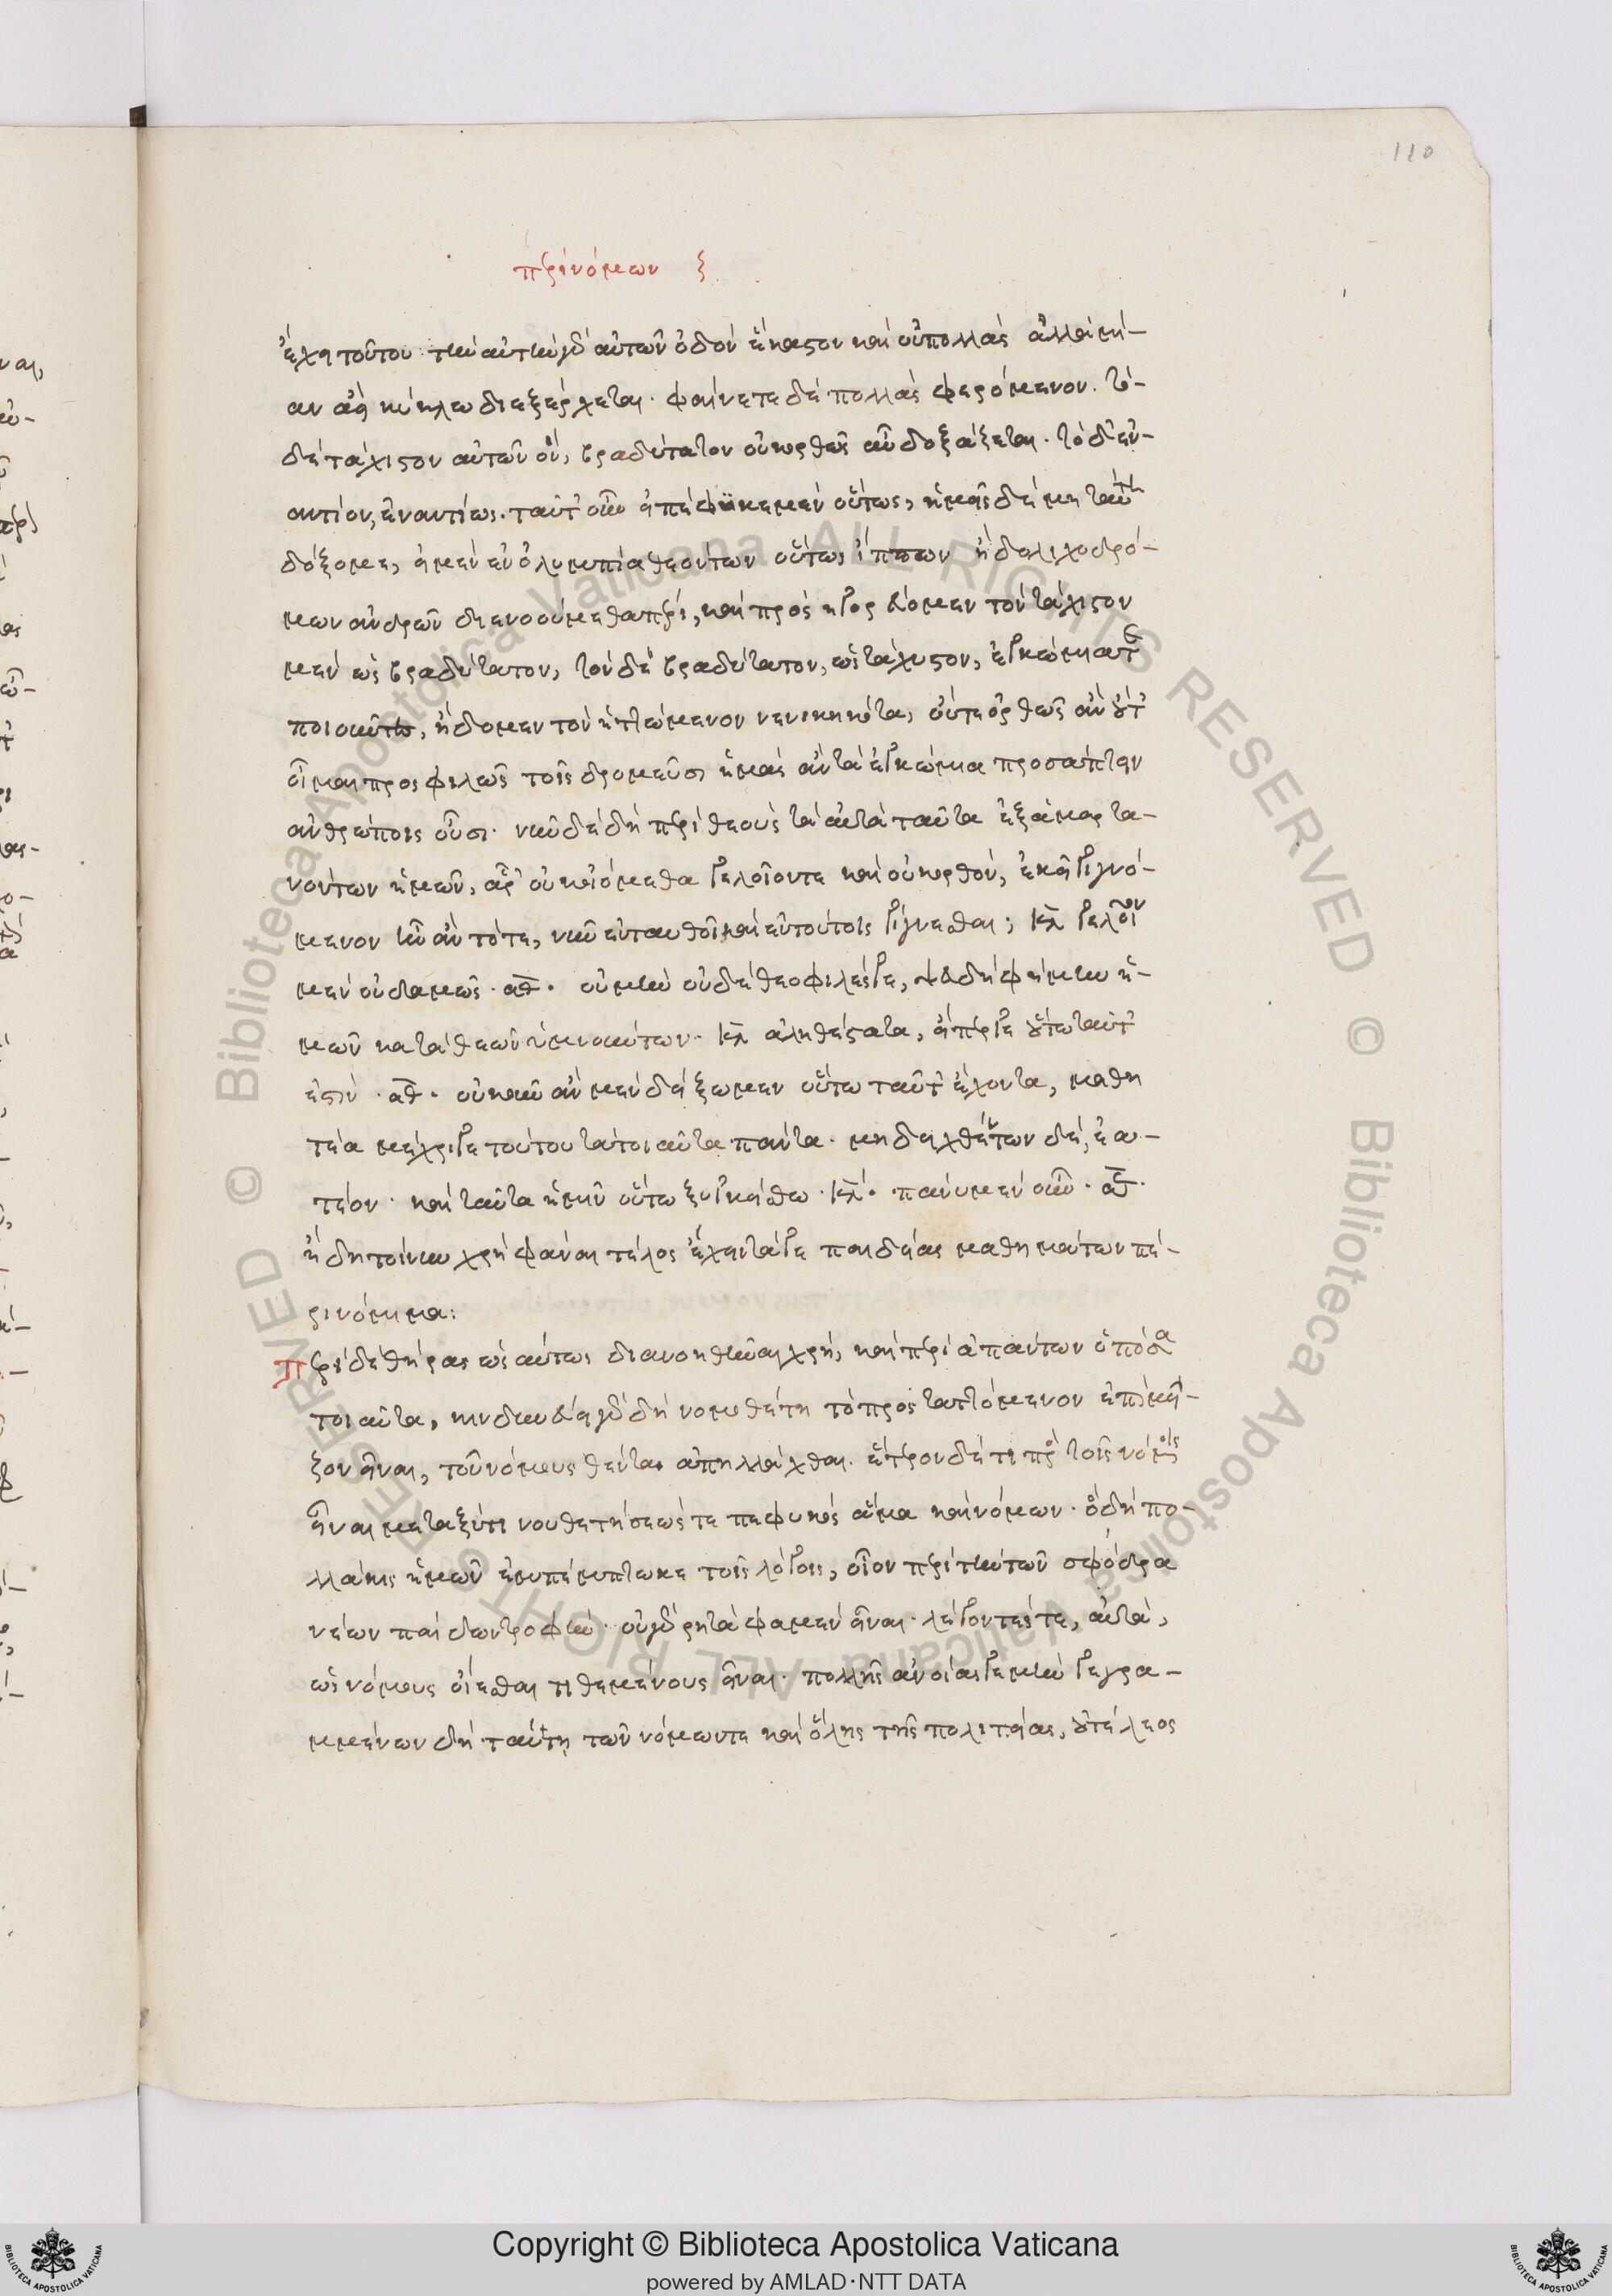 110
περὶ νόμων ζ
ἔχει τούτου. τὴν αὐτὴν γὰρ αὐτῶν ὁδὸν ἕκαστον καὶ οὐ πολλὰς ἀλλὰ μί-
αν ἀεὶ κύκλω διεξέρχεται. φαίνεται δὲ πολλὰς φερόμενον. τὸ-
δὲ τάχιστον αὐτῶν ὂν, βραδύτατον οὐκ ὀρθῶς αὖ δοξάζεται. τὸ δ' ἐν-
αντίον, ἐναντίως. ταῦτ' οὖν εἰ πέφυκε μὲν οὕτως, ἡμεῖς δὲ μὴ ταύτη
δόξομεν, εἰ μὲν ἐν ὀλυμπία θεόντων οὕτως ἵππων ἢ δολιχοδρό-
μων ἀνδρῶν διενοούμεθα πέρι, καὶ προσηγορεύομεν τὸν τάχιστον
μὲν ὡς βραδύτατον, τὸν δὲ βραδύτατον, ὡς τάχιστον, ἐγκώμιά τε
ποιοῦντες, ἤδομεν τὸν ἡττώμενον νενικηκότα, οὔτε ὀρθῶς ἂν οὔτ'
οἶμαι προσφιλῶς τοῖς δρομεῦσι ἡμᾶς ἂν τὰ ἐγκώμια προσάπτειν
ἀνθρώποις οὖσι. νῦν δὲ δὴ περὶ θεοὺς τὰ αὐτὰ ταῦτα ἐξαμαρτα-
νόντων ἡμῶν, ἆρ' οὐκ οἰόμεθα γελοῖόν τε καὶ οὐκ ὀρθὸν, ἐκεῖ γιγνό-
μενον ἦν ἂν τότε, νῦν ἐνταυθοῖ καὶ ἐν τούτοις γίγνεσθαι; κλ γελοῖον
μὲν οὐδαμῶς. αθ. οὐ μὴν οὐδὲ θεοφιλές γε, ψευδῆ φήμην ἡ-
μῶν κατὰ θεῶν ὑμνούντων. κλ ἀληθέστατα, εἴπερ γε οὕτω ταῦτ'
ἐστίν. αθ. οὐκοῦν ἂν μὲν δείξωμεν οὕτω ταῦτ' ἔχοντα, μαθη
τέα μέχρι γε τούτου τὰ τοιαῦτα πάντα. μὴ δειχθέντων δὲ, ἐα-
τέον. καὶ ταῦτα ἡμῖν οὕτω ξυγκείσθω. κλ. πάνυ μὲν οὖν. αθ.
ἤδη τοίνυν χρὴ φάναι τέλος ἔχειν τά γε παιδείας μαθημάτων πέ-
ρι νόμιμα:
περὶ δὲ θήρας ὡσαύτως διανοηθῆναι χρή, καὶ περὶ ἁπάντων ὁπόσα
τοιαῦτα, κινδυνεύει γὰρ δὴ νομοθέτη τὸ προσταττόμενον ἐπὶ μεῖ-
ζον εἶναι, τοῦ νόμους θέντα ἀπηλλάχθαι. ἕτερον δέ τι πρὸς τοῖς νόμοις
εἶναι μεταξύ τι νουθετήσεώς τε πεφυκὸς ἅμα καὶ νόμων. ὃ δὴ πο-
λλάκις ἡμῶν ἐμπέπτωκε τοῖς λόγοις, οἷον περὶ τὴν τῶν σφόδρα
νέων παίδων τροφήν. οὐ γὰρ ῥητά φαμεν εἶναι. λέγοντές τε, αὐτὰ,
ὡς νόμους οἴεσθαι τιθεμένους εἶναι. πολλῆς ἀνοίας γέμειν γεγρα-
μμένων δὴ ταύτη τῶν νόμων τε καὶ ὅλης τῆς πολιτείας, οὐ τέλεος
Copyright © Biblioteca Apostolica Vaticana
powered by AMLAD·NTT DATA